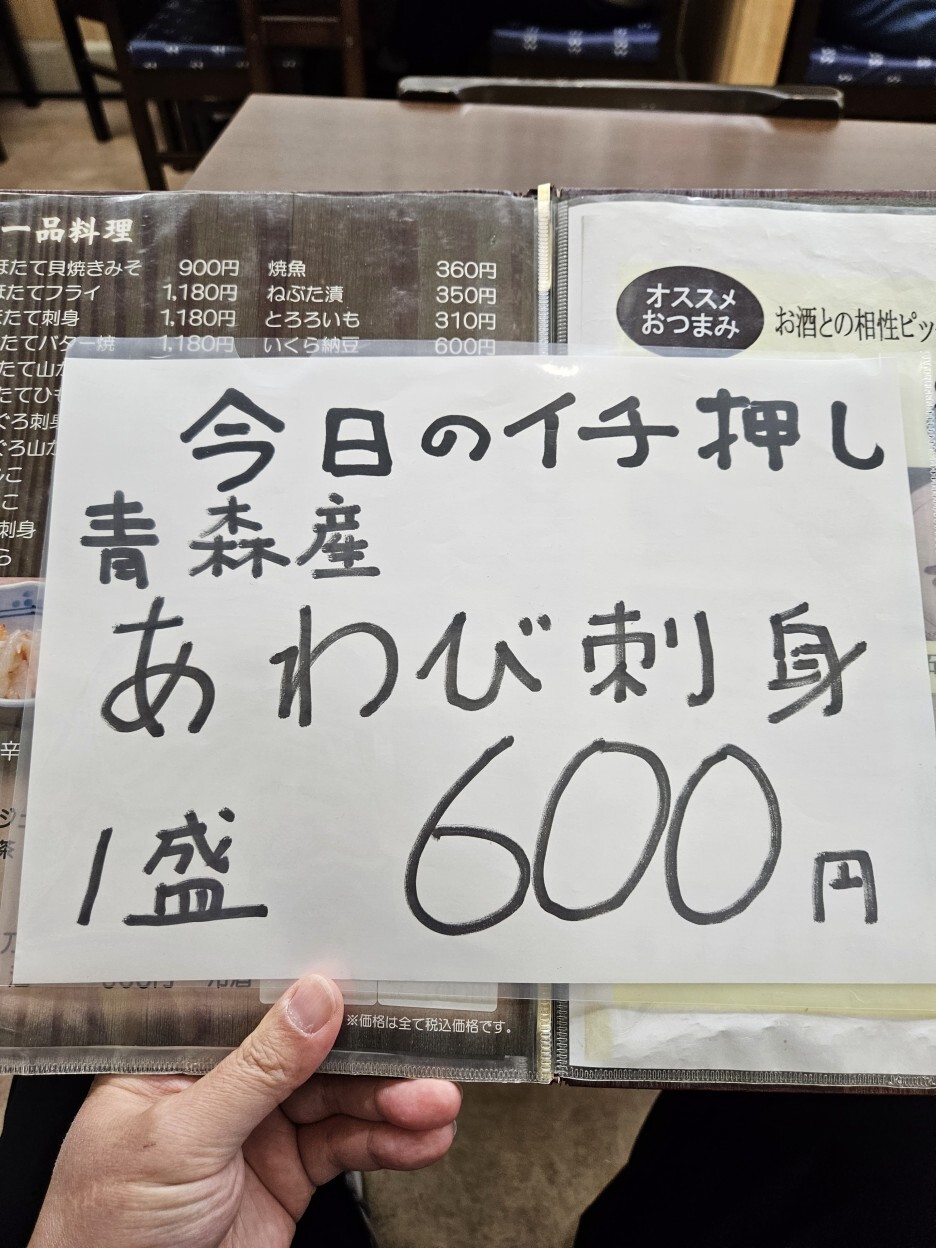 一品料理
ほたて貝焼きみそ 900円
ほたてフライ 1,180円
ほたて刺身 1,180円
たてバター焼 1,180円
たて山か
たてひも
ぐろ刺身
ぐろ山か
こ
刺身
ら
焼魚 360円
ねぶた漬 350円
とろろいも 310円
いくら納豆 600円
オススメ
おつまみ
お酒との相性ピッ
今日のイチ押し
青森産
あわび刺身
1盛 600円
辛
茶
冷酒
※価格は全て税込価格です。